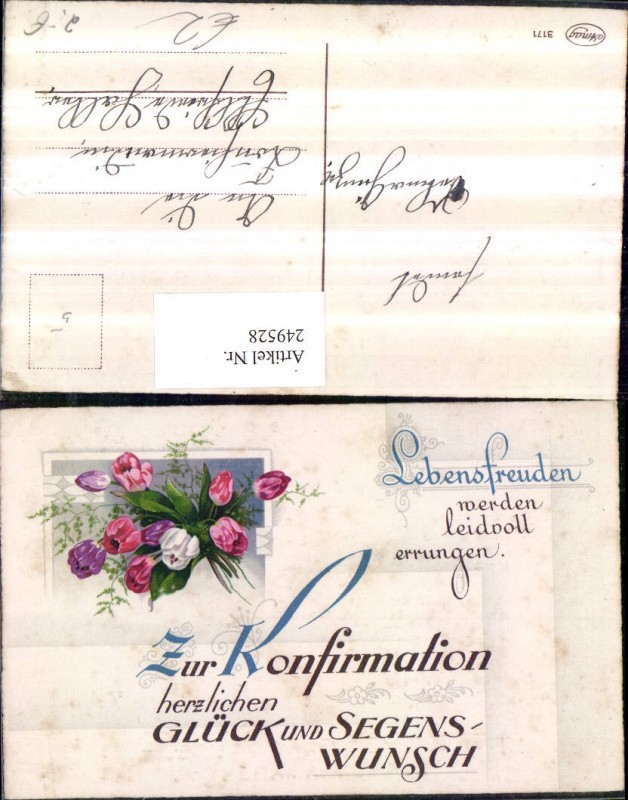 Amag
3171
€2
An die
Konfirmandin
Artikel Nr.
249528
5
Lebensfreuden
werden
leidvoll
errungen.
Zur Konfirmation
herzlichen
GLÜCK UND SEGENS-
WUNSCH